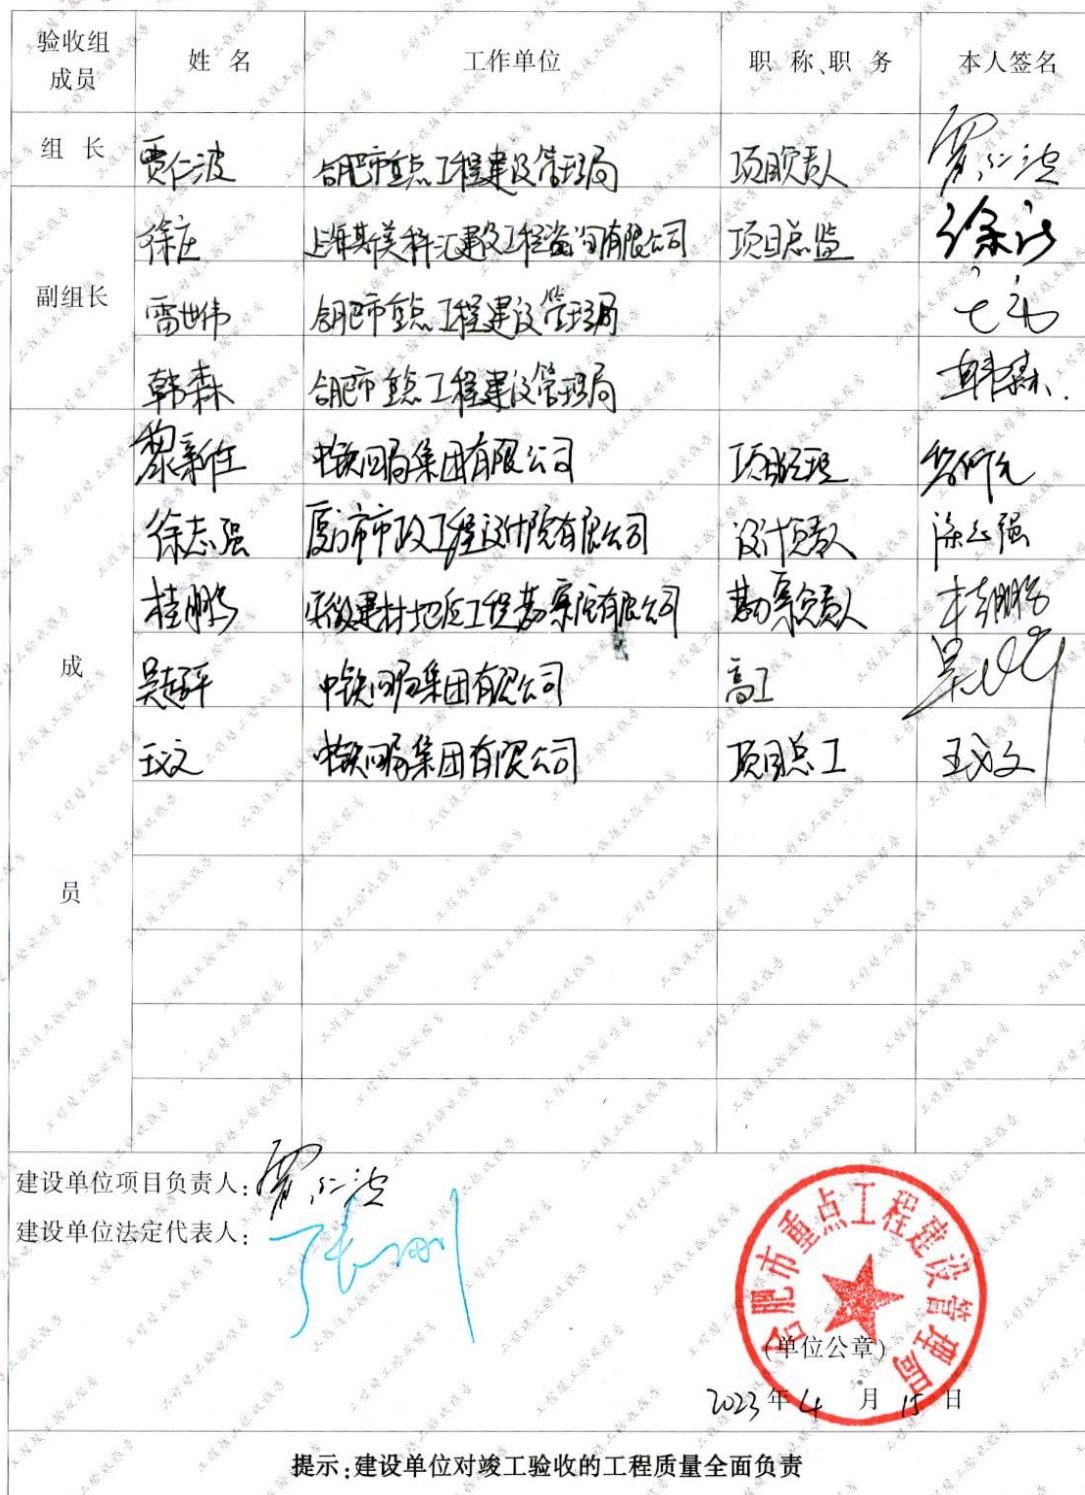 验收组成员 姓 名 工作单位 职 称、职 务 本人签名
组 长 贾仁波 合肥市重点工程建设管理局 项目负责人 贾仁波
副组长
徐庄 上海斯美科汇建设工程咨询有限公司 项目总监
雷世伟 合肥市重点工程建设管理局
韩森 合肥市重点工程建设管理局 韩森
成员
黎新生 中铁四局集团有限公司 项目经理
徐志强 厦门市市政工程设计院有限公司 设计负责人 徐志强
桂鹏 安徽建材地质工程勘察院有限公司 勘察负责人 桂鹏
吴超平 中铁四局集团有限公司 高工
中铁四局集团有限公司 项目总工
建设单位项目负责人: 贾仁波
建设单位法定代表人: 张刚
合肥市重点工程建设管理局
(单位公章)
2023 年 4 月 15 日
提示:建设单位对竣工验收的工程质量全面负责
工程竣工验收报告